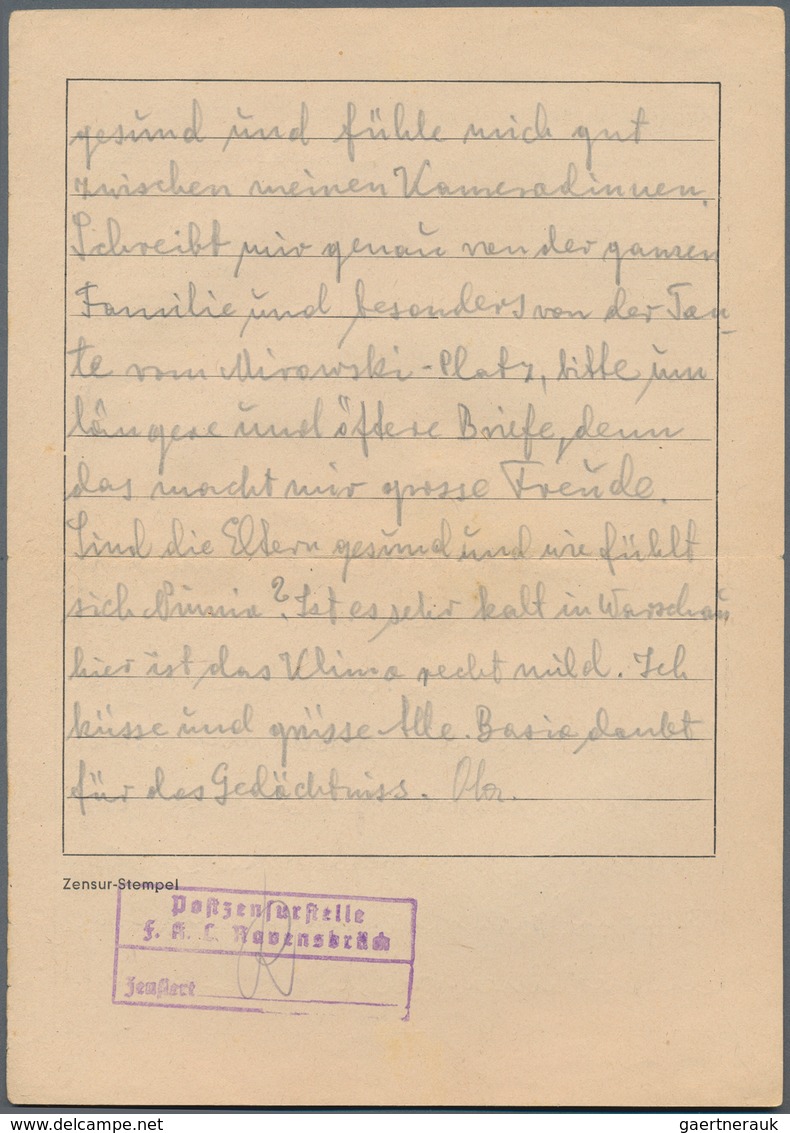 gesund und fühle mich gut
zwischen meinen Kameradinnen.
Schreibt mir genau von der ganzen
Familie und besonders von der Tan-
te vom Mirowski-Platz, bitte um
längere und öftere Briefe, denn
das macht mir grosse Freude.
Sind die Eltern gesund und wie fühlt
sich ? Ist es sehr kalt in Warschau
hier ist das Klima recht mild. Ich
küsse und grüsse Alle. Basia dankt
für das Gedächtniss.
Zensur-Stempel
Postzensurstelle
F. K. L. Ravensbrück
Zensiert
Oldthing.com
gaertnerauk